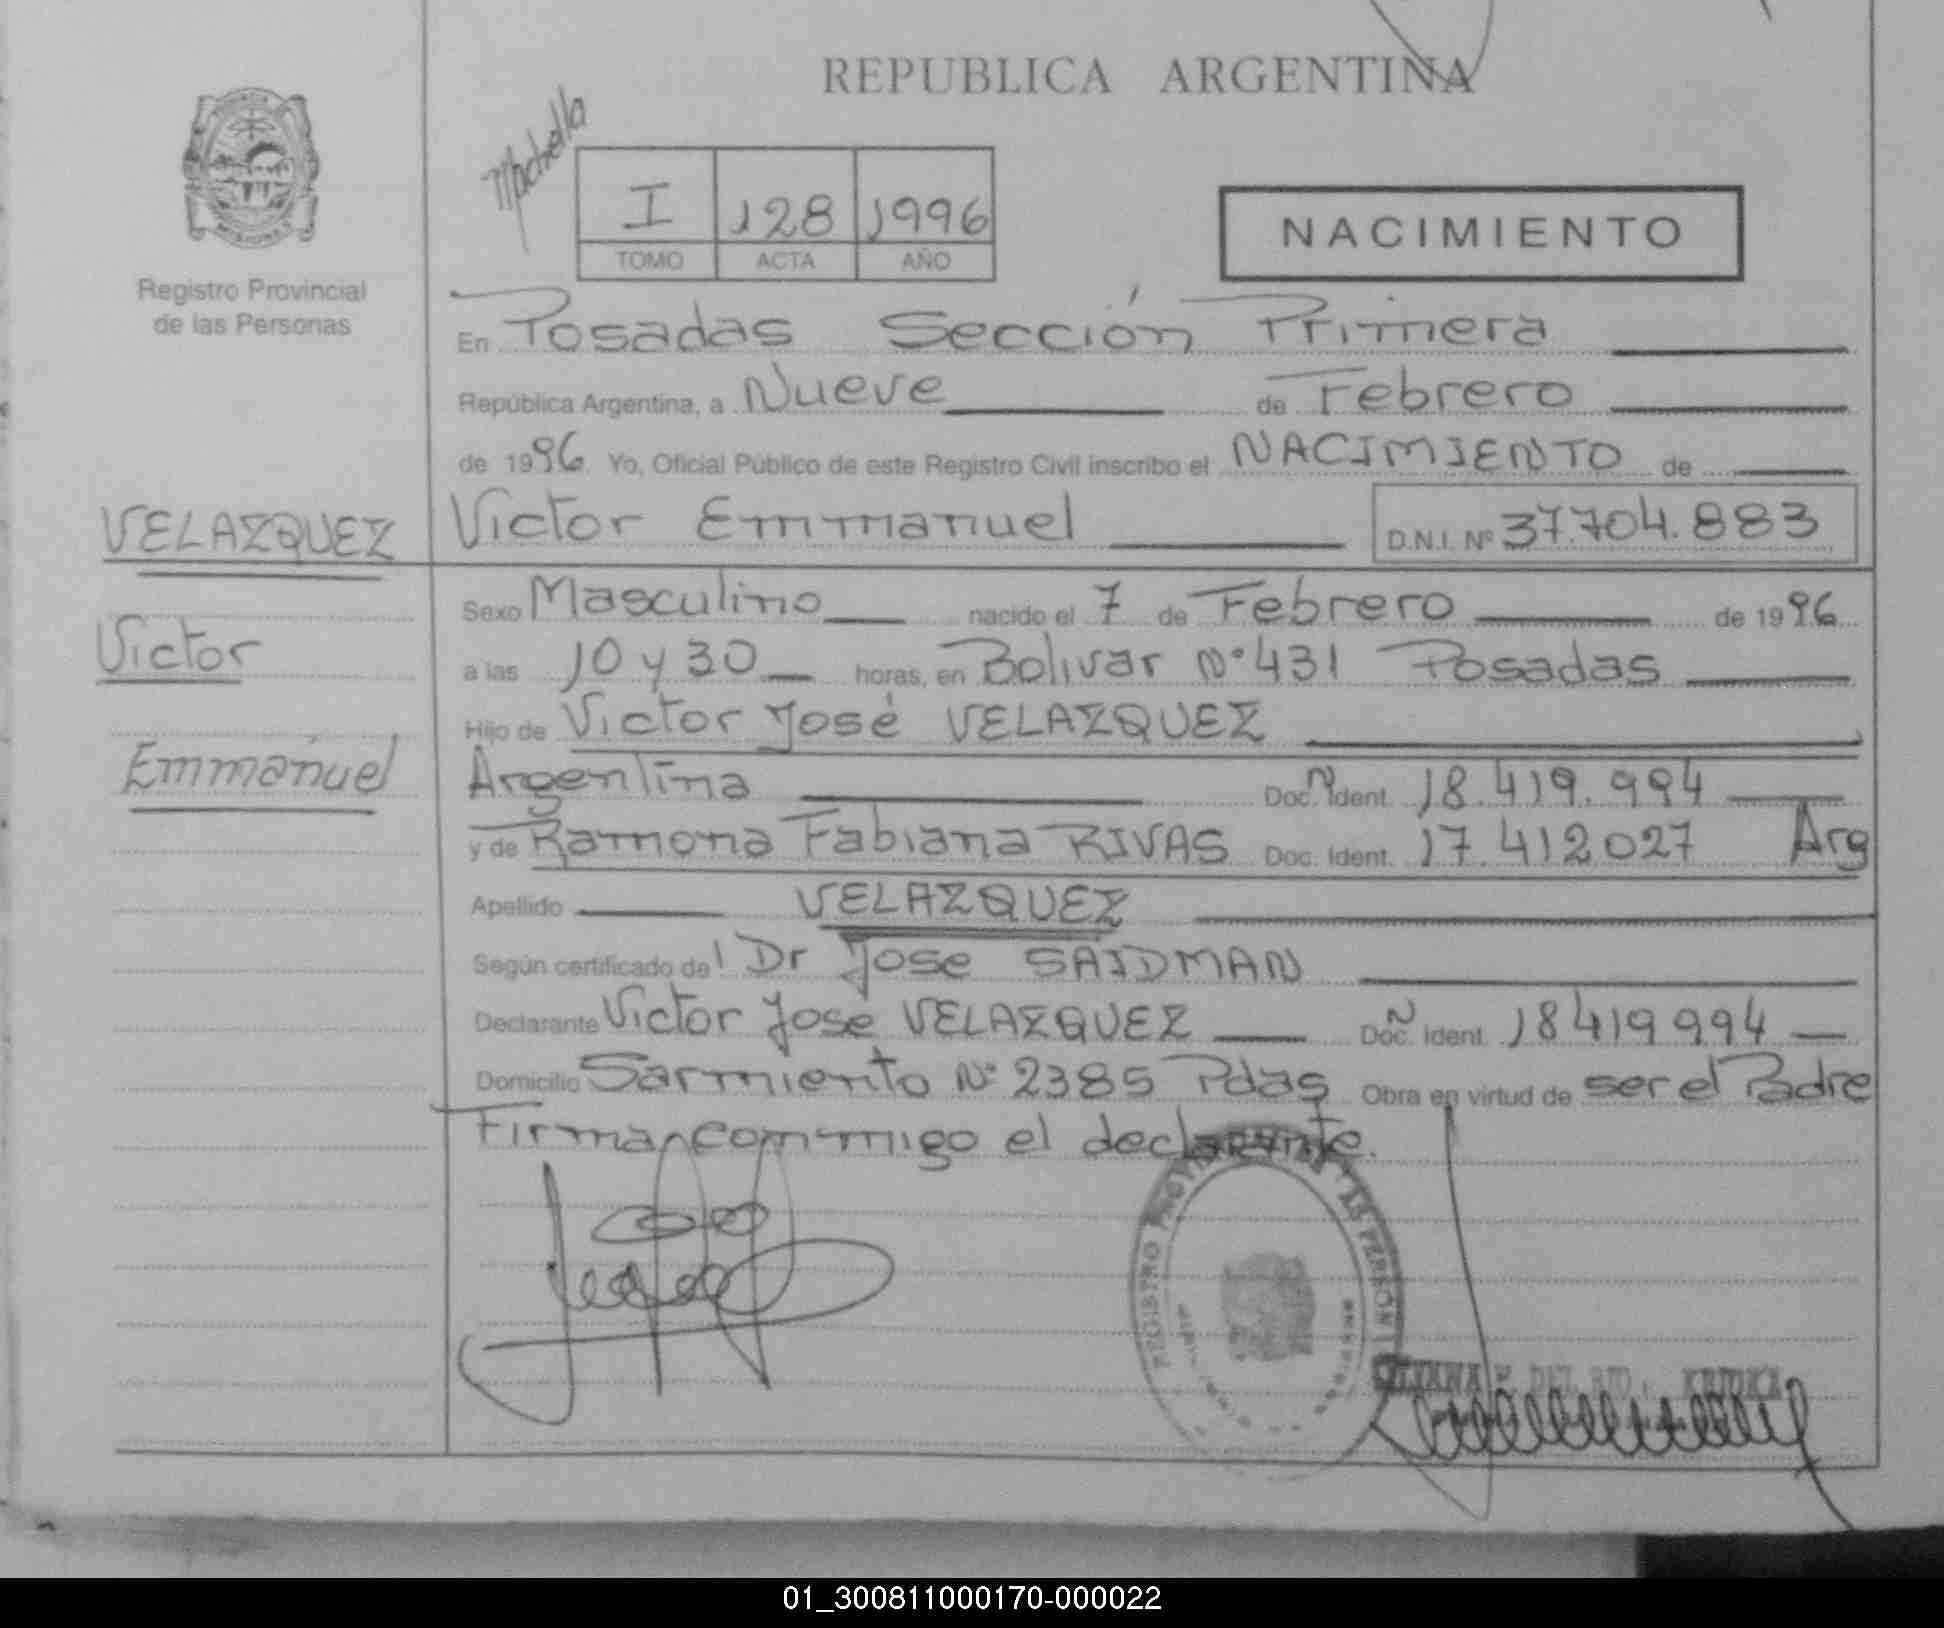 REPUBLICA ARGENTINA
I 128 1996
TOMO ACTA AÑO
NACIMIENTO
MISIONES
Registro Provincial
de las Personas
En Posadas Sección Primera
República Argentina, a Nueve de Febrero
de 1996 Yo, Oficial Público de este Registro Civil inscribo el NACIMIENTO de
VELAZQUEZ Victor Emmanuel D.N.I. Nº 37.704.883
Sexo Masculino nacido el 7 de Febrero de 1996
Victor
a las 10 y 30 horas, en Bolivar Nº 431 Posadas
Hijo de Victor José VELAZQUEZ
Emmanuel
Argentina Doc. Ident. 18.419.994
y de Ramona Fabiana RIVAS Doc. Ident. 17.412027 Arg
Apellido VELAZQUEZ
Según certificado del Dr Jose SAIDMAN
Declarante Victor Jose VELAZQUEZ Doc. Ident. 18419994
Domicilio Sarmiento Nº 2385 Pdas Obra en virtud de ser el Padre
Firma conmigo el declarante.
REGISTRO
01_300811000170-000022